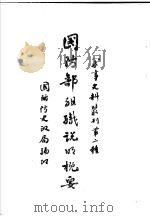 軍事史料叢刊第二種
國防部組織説明概要
國防部史政局編印